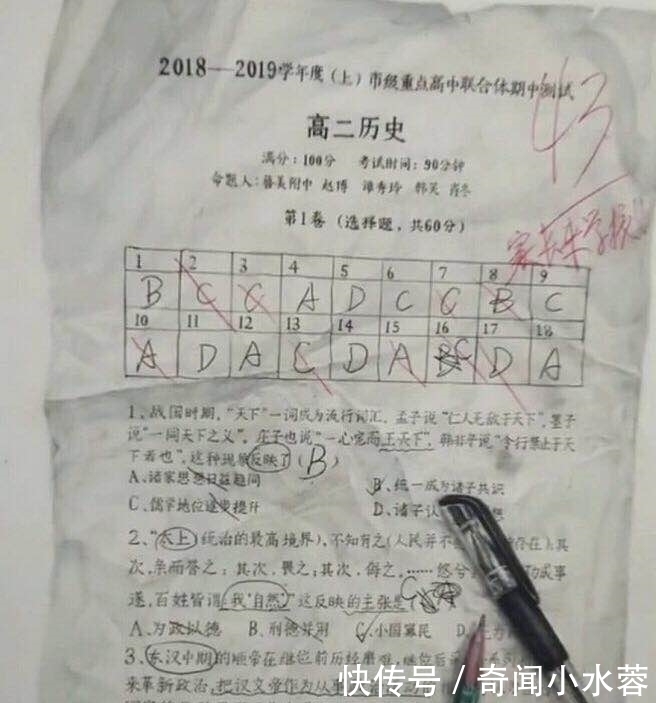 2018—2019学年度（上）市级重点高中联合体期中测试
43
高二历史
满分：100分 考试时间：90分钟
第1卷 （选择题，共60分）
家长来学校
1 2 3 4 5 6 7 8 9
B C C A D C C B C
10 11 12 13 14 15 16 17 18
A D A C D A C D A
1、战国时期，“天下”一词成为流行词汇，孟子说“仁人无敌于天下”，墨子
说“一同天下之义”，庄子也说“一心定而王天下”，韩非子说“令行禁止于天
下者也”，这种现象反映了（B）
A、诸家思想日益趋同 B、统一成为诸子共识
C、儒学地位逐步提升 D、诸子认
2、“（太上）统治的最高境界），不知有之（人民并不 存在）；其
次，亲而誉之；其次，畏之；其次，侮之。……悠兮 功成事
遂，百姓皆谓‘我自然’”这反映的主张是 C
A、为政以德 B、刑德并用 C、小国寡民 D、
3、东汉中期的顺帝在继位前历经磨难，继位后
来革新政治，把汉文帝作为
快传号 / 奇闻小水蓉